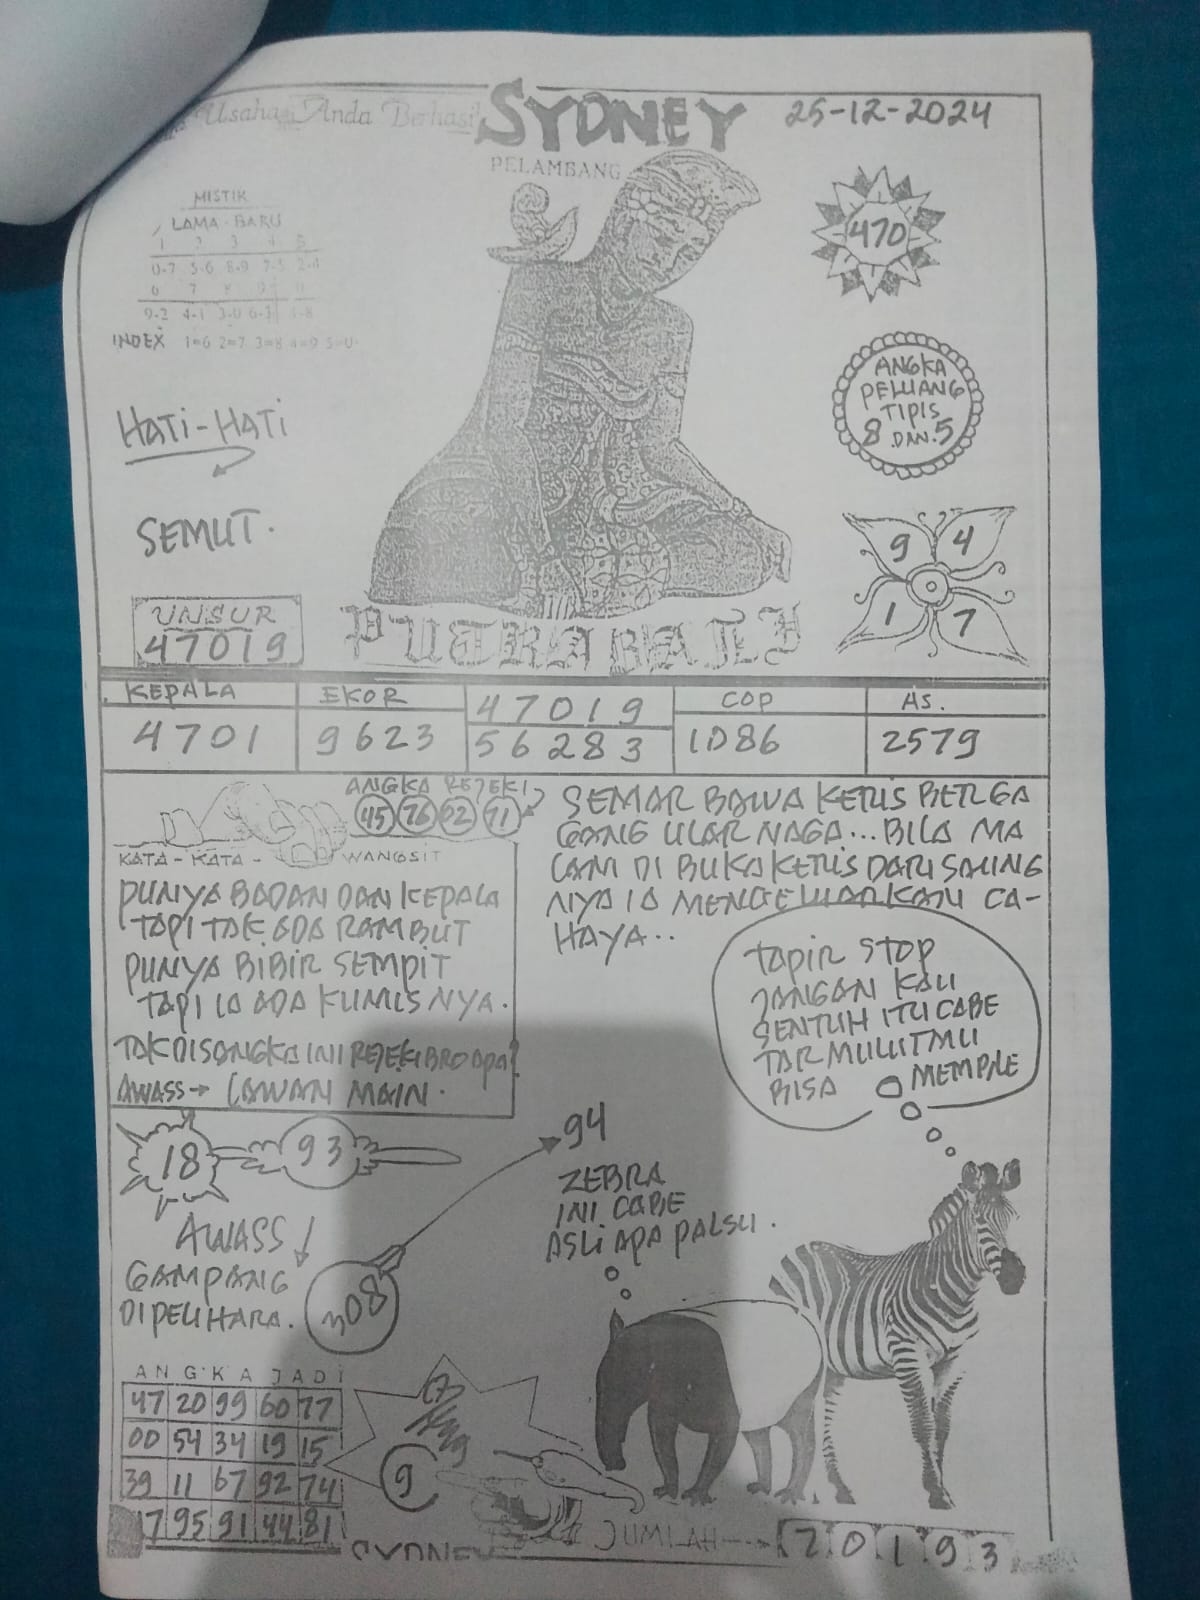 Usaha Anda Berhasil
SYDNEY
25-12-2024
PELAMBANG
MISTIK
LAMA - BARU
1 2 3 4 5
0-7 5-6 8-9 7-5 2-4
9-2 4-1 3-0 6-3
INDEX 1=6 2=7 3=8 4=9 5=0
470
HATI-HATI
ANGKA
PELUANG
TIPIS
8 DAN.5
SEMUT.
9 4
1 7
UNSUR
47019
PUTRA BALI
KEPALA
4701
EKOR
9623
47019
56283
COP
1086
AS.
2579
ANGKA REJEKI
45 76 02 71
KATA - KATA - WANGSIT
PUNYA BADAN DAN KEPALA
TAPI TAK ADA RAMBUT
PUNYA BIBIR SEMPIT
TAPI IA ADA KUMISNYA.
TAK DISANGKA INI REJEKI BRO APA?
AWASS→ LAWAN MAIN.
SEMAR BAWA KERIS BERGA
GANG ULAR NAGA... BILA MA
LAM DI BUKA KERIS DARI SARUNG
NYA IA MENGELUARKAN CA-
HAYA..
TAPIR STOP
JANGAN KAU
SENTUH ITU CABE
TAR MULUTMU
BISA MEMPLE
18 93
94
ZEBRA
INI CABE
ASLI APA PALSU.
AWASS
GAMPANG
DIPELIHARA.
08
ANGKA JADI
47 20 99 60 77
00 54 34 19 15
39 11 67 92 74
17 95 91 44 81
9
SYDNEY
JUMLAH
2 0 1 9 3